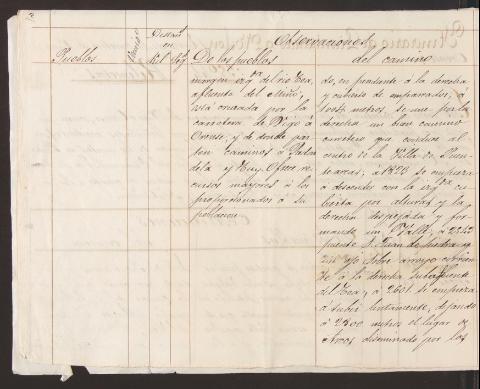 Observaciones
Pueblos
en
De los pueblos
del camino
margen izqª del rio Tea,
afluente del Miño,
está cruzada por la
carretera de Vigo á
Orense, y de donde par
ten caminos á
y Tuy. Ofrece re
cursos mayores á los
proporcionados á su
poblacion
do, en pendiente á la derecha
y cubierto de emparrados, á
metros, se une por la
derecha un buen camino
carretero que conduce al
centro de la Villa de Puen
teareas, á 1820 se empieza
á descender con la izqda cu
bierta por alturas y la
derecha despejada y for
mando un Valle, á 2242
puente S. Juan de piedra
ojo sobre arroyo
á la derecha
del Tea, á 2601 se empieza
á subir lentamente, dejando
á 2800 metros el lugar de
diseminado por los